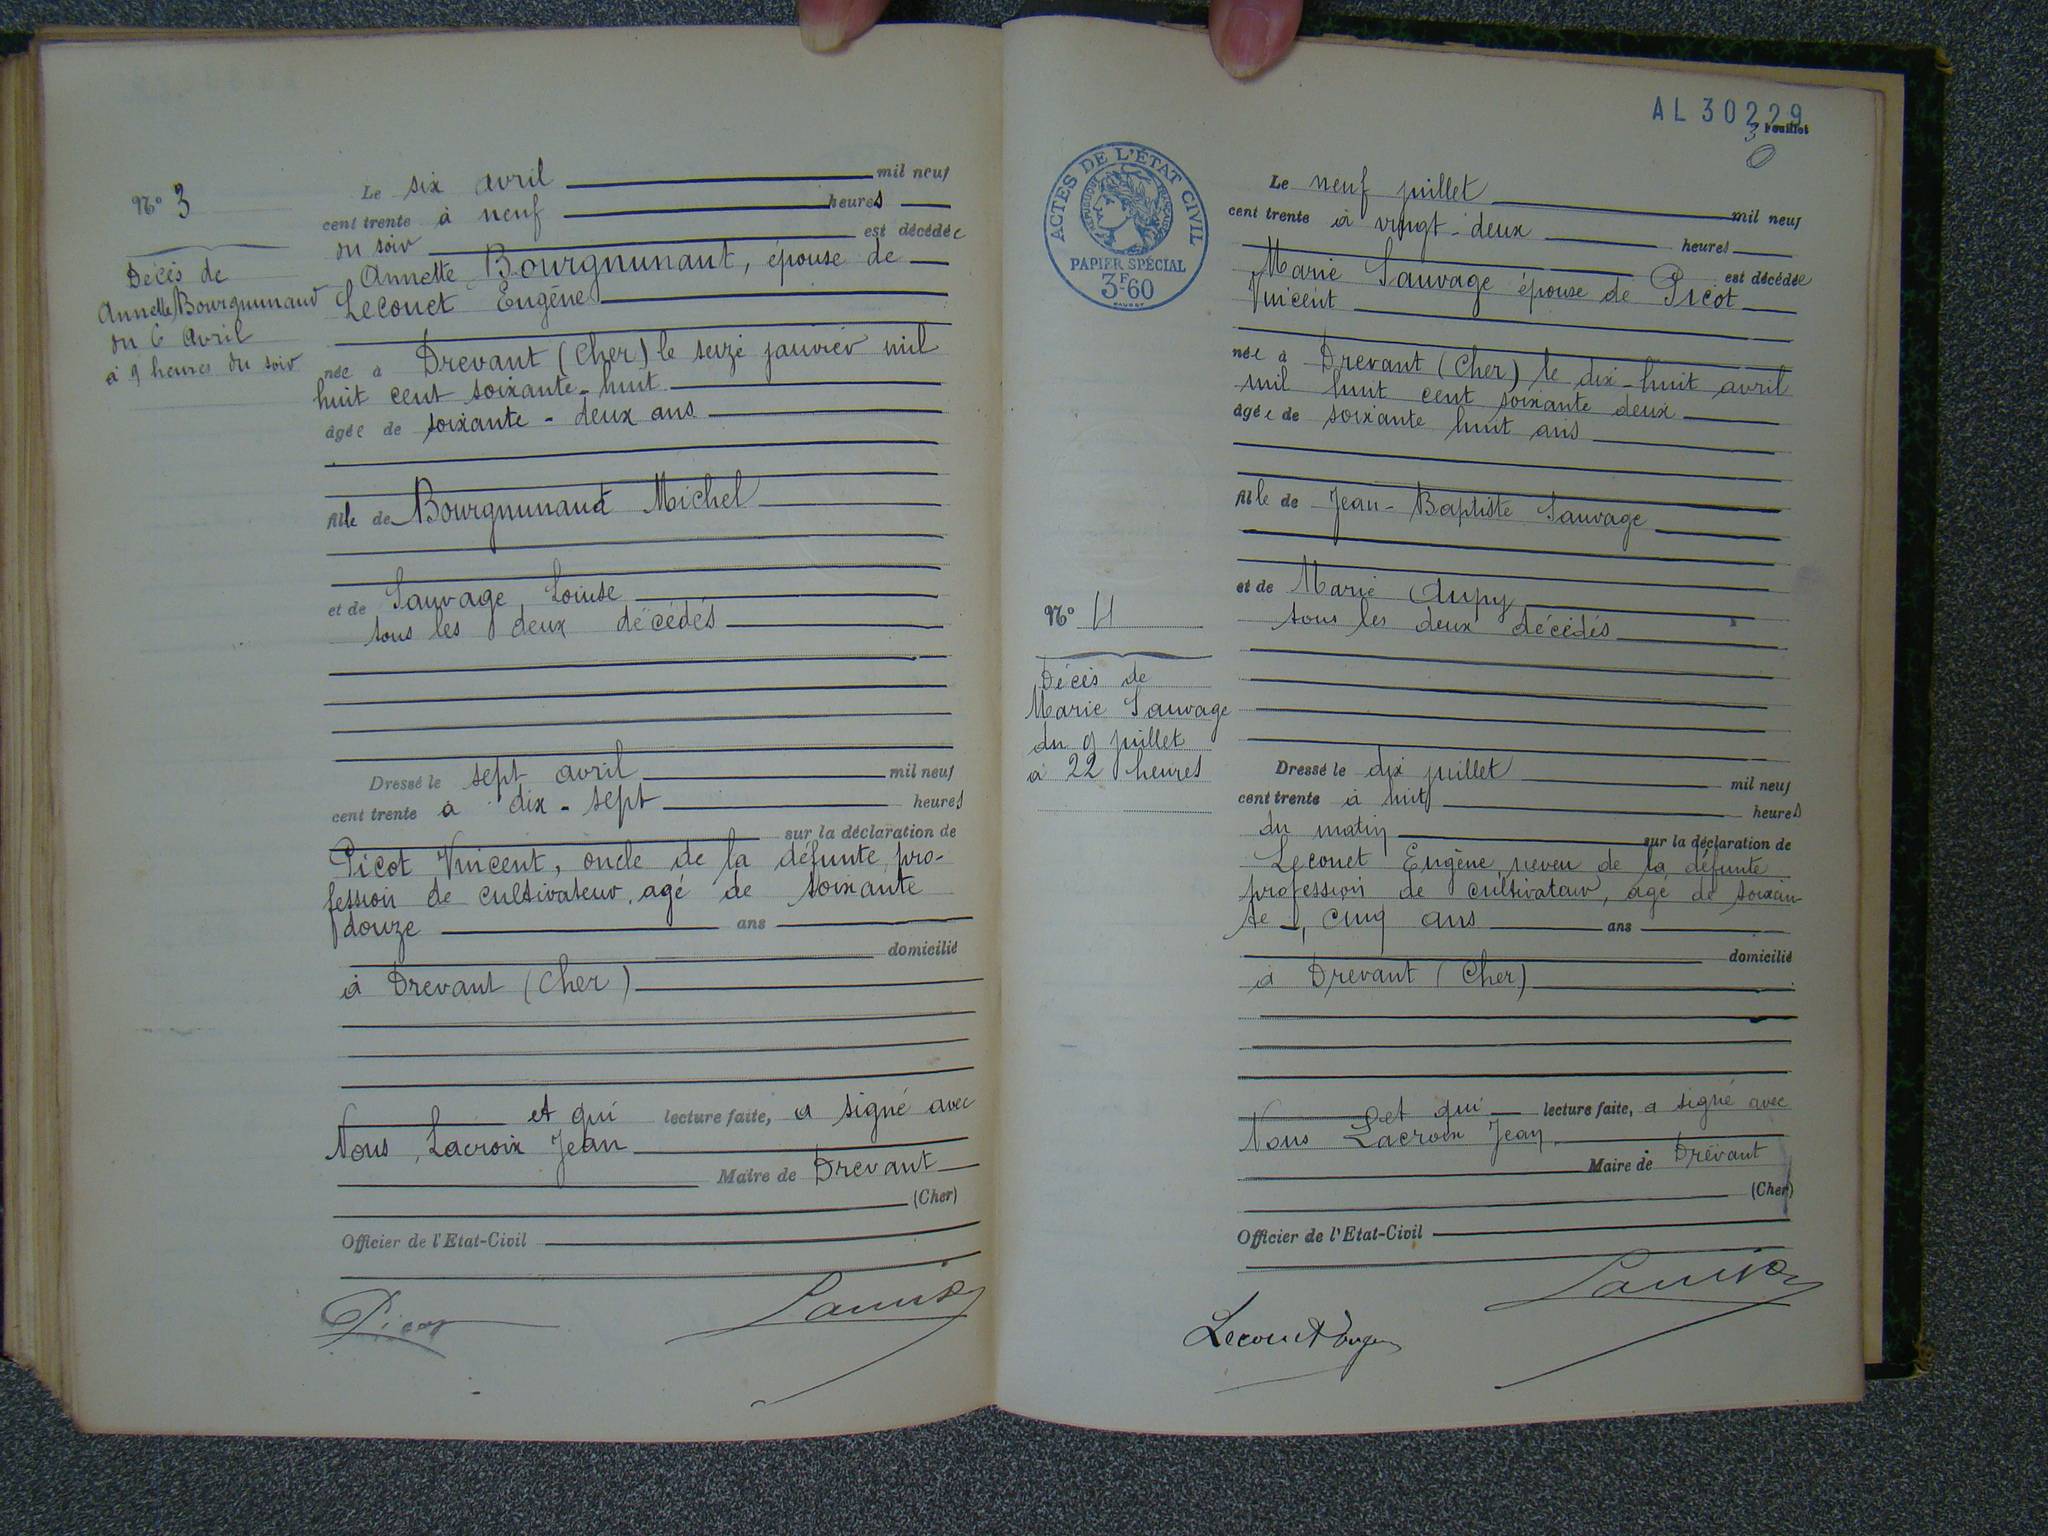 N° 3
Décès de
Annette Bourgnunaud
du 6 Avril
à 9 heures du soir
Le six avril mil neuf
cent trente à neuf heures
du soir est décédée
Annette Bourgnunaut, épouse de
Lecouet Eugène
née à Drevant (Cher) le seize janvier mil
huit cent soixante-huit
âgée de soixante-deux ans
fille de Bourgnunaud Michel
et de Sauvage Louise
tous les deux décédés
Dressé le sept avril mil neuf
cent trente à dix-sept heures
sur la déclaration de
Picot Vincent, oncle de la défunte, pro-
fession de cultivateur, agé de soixante
douze ans
domicilié
à Drevant (Cher)
et qui lecture faite, a signé avec
Nous, Lacroix Jean
Maire de Drevant
(Cher)
Officier de l'Etat-Civil
Picot Lacroix
AL 30229
3 Feuillet
ACTES DE L'ÉTAT CIVIL
RÉPUBLIQUE FRANÇAISE
PAPIER SPÉCIAL
3F60
N° 4
Décès de
Marie Sauvage
du 9 juillet
à 22 heures
Le neuf juillet mil neuf
cent trente à vingt-deux heures
est décédée
Marie Sauvage épouse de Picot
Vincent
née à Drevant (Cher) le dix-huit avril
mil huit cent soixante deux
âgée de soixante huit ans
fille de Jean-Baptiste Sauvage
et de Marie Aupy
tous les deux décédés
Dressé le dix juillet mil neuf
cent trente à huit heures
du matin sur la déclaration de
Lecouet Eugène, neveu de la défunte
profession de cultivateur, agé de soixan-
te-cinq ans ans
domicilié
à Drevant (Cher)
et qui lecture faite, a signé avec
Nous Lacroix Jean
Maire de Drevant
(Cher)
Officier de l'Etat-Civil
Lecouet Eugène Lacroix